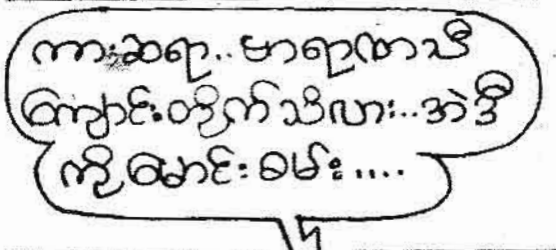 ကားဆရာ..မာရာဏသီ
ကျောင်းတိုက်သိလား..အဲဒီ
ကို မောင်းစမ်း....